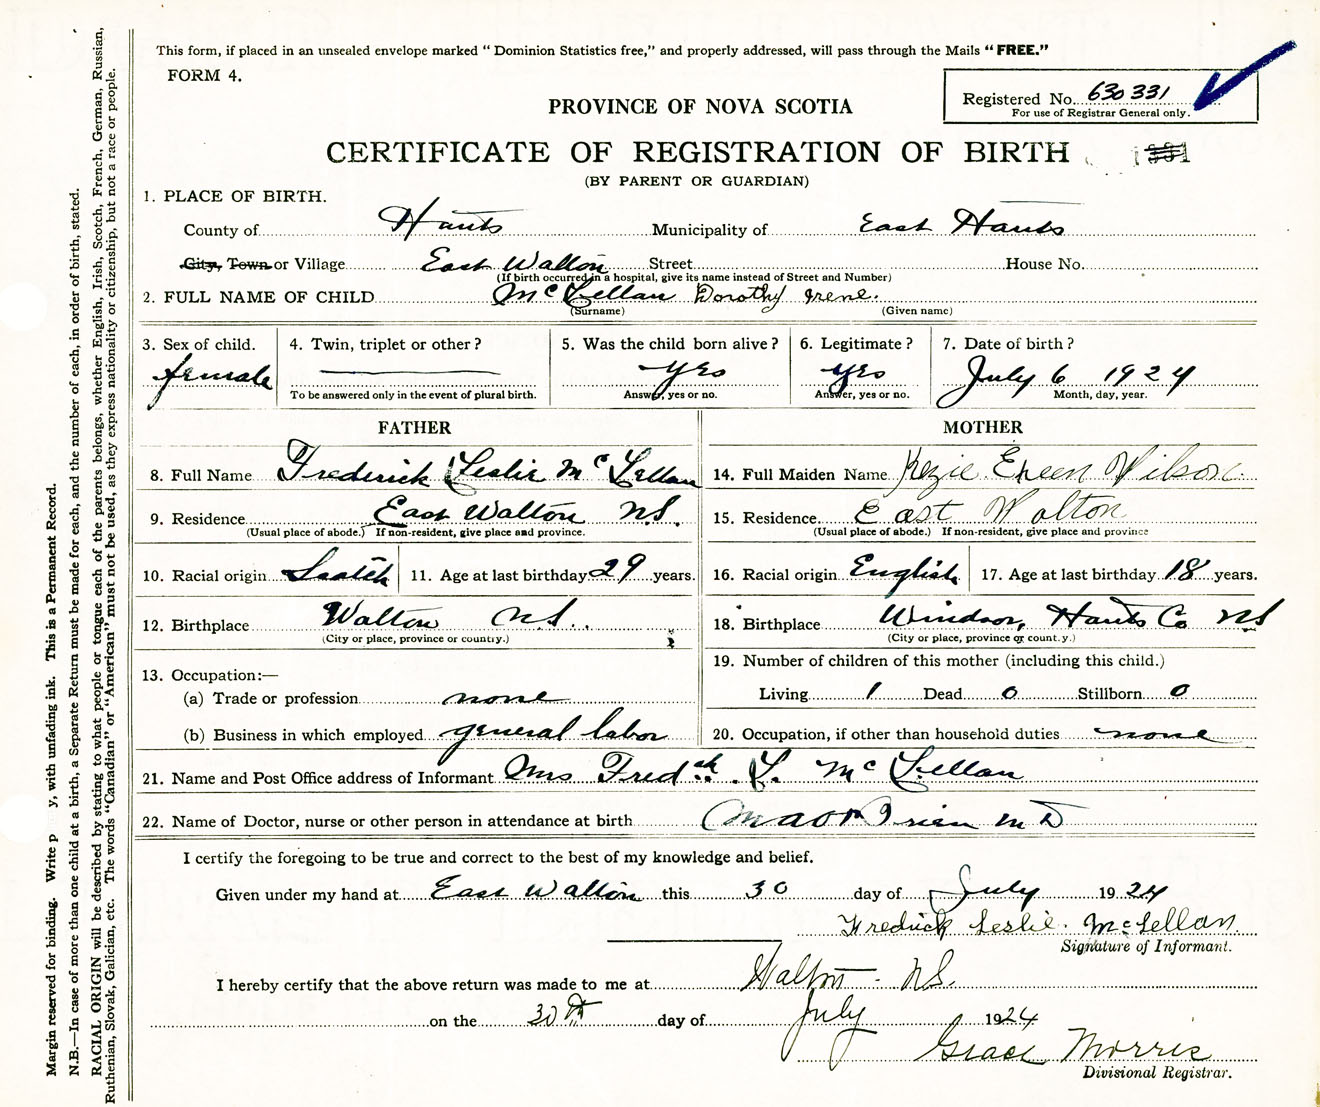 This form, if placed in an unsealed envelope marked " Dominion Statistics free," and properly addressed, will pass through the Mails "FREE."
FORM 4.
Registered No. 630331
For use of Registrar General only.
PROVINCE OF NOVA SCOTIA
CERTIFICATE OF REGISTRATION OF BIRTH
(BY PARENT OR GUARDIAN)
1. PLACE OF BIRTH.
County of Hants Municipality of East Hants
City, Town or Village East Walton Street House No.
(If birth occurred in a hospital, give its name instead of Street and Number)
2. FULL NAME OF CHILD McLellan Dorothy Irene.
(Surname) (Given name)
3. Sex of child. 4. Twin, triplet or other? 5. Was the child born alive? 6. Legitimate? 7. Date of birth?
female yes yes July 6 1924
To be answered only in the event of plural birth. Answer, yes or no. Answer, yes or no. Month, day, year.
FATHER MOTHER
8. Full Name Frederick Leslie McLellan 14. Full Maiden Name Kezie Eileen Wilson
9. Residence East Walton N.S. 15. Residence East Walton
(Usual place of abode.) If non-resident, give place and province. (Usual place of abode.) If non-resident, give place and province
10. Racial origin Scotch 11. Age at last birthday 29 years. 16. Racial origin English 17. Age at last birthday 18 years.
12. Birthplace Walton N.S. 18. Birthplace Windsor, Hants Co NS
(City or place, province or country.) (City or place, province or country.)
19. Number of children of this mother (including this child.)
13. Occupation:—
(a) Trade or profession none Living 1 Dead 0 Stillborn 0
(b) Business in which employed general labor 20. Occupation, if other than household duties none
21. Name and Post Office address of Informant Mrs Fredck. L. McLellan
22. Name of Doctor, nurse or other person in attendance at birth M D
I certify the foregoing to be true and correct to the best of my knowledge and belief.
Given under my hand at East Walton this 30 day of July 1924
Fredrick Leslie. McLellan.
Signature of Informant.
I hereby certify that the above return was made to me at Walton - N.S.
on the 30th day of July 1924
Grace Morris
Divisional Registrar.
Margin reserved for binding. Write p y, with unfading ink. This is a Permanent Record.
N.B.—In case of more than one child at a birth, a Separate Return must be made for each, and the number of each, in order of birth, stated.
RACIAL ORIGIN will be described by stating to what people or tongue each of the parents belongs, whether English, Irish, Scotch, French, German, Russian,
Ruthenian, Slovak, Galician, etc. The words "Canadian" or "American" must not be used, as they express nationality or citizenship, but not a race or people.